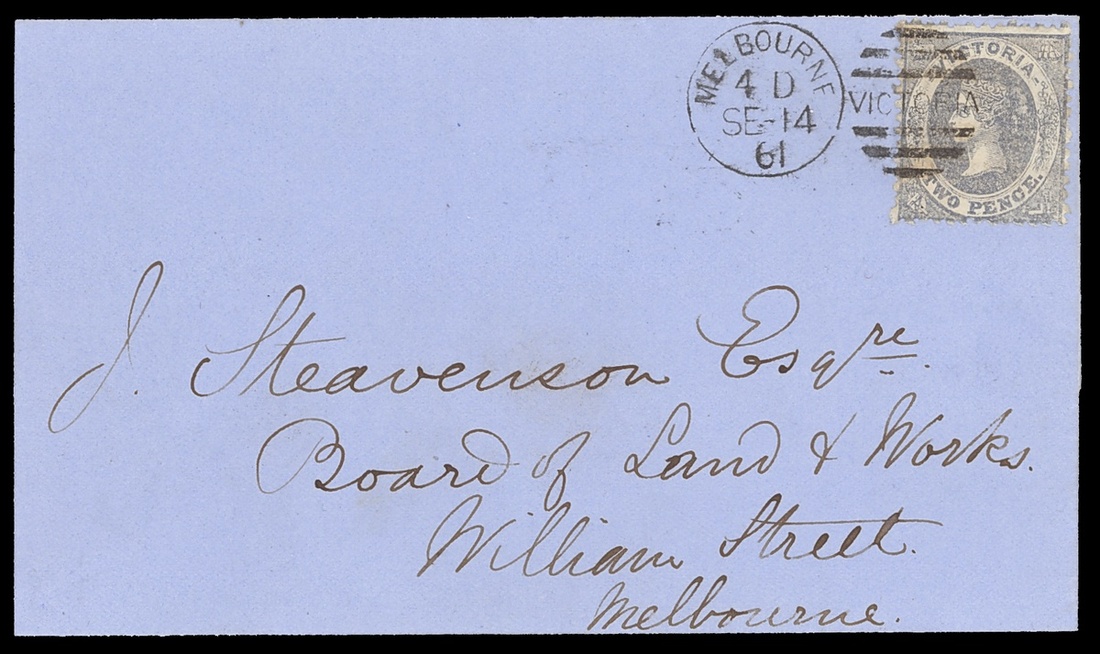 MELBOURNE
4 D
SE-14
61
VICTORIA
VICTORIA
TWO PENCE.
J. Steavenson Esqre.
Board of Land & Works.
William Street.
Melbourne.